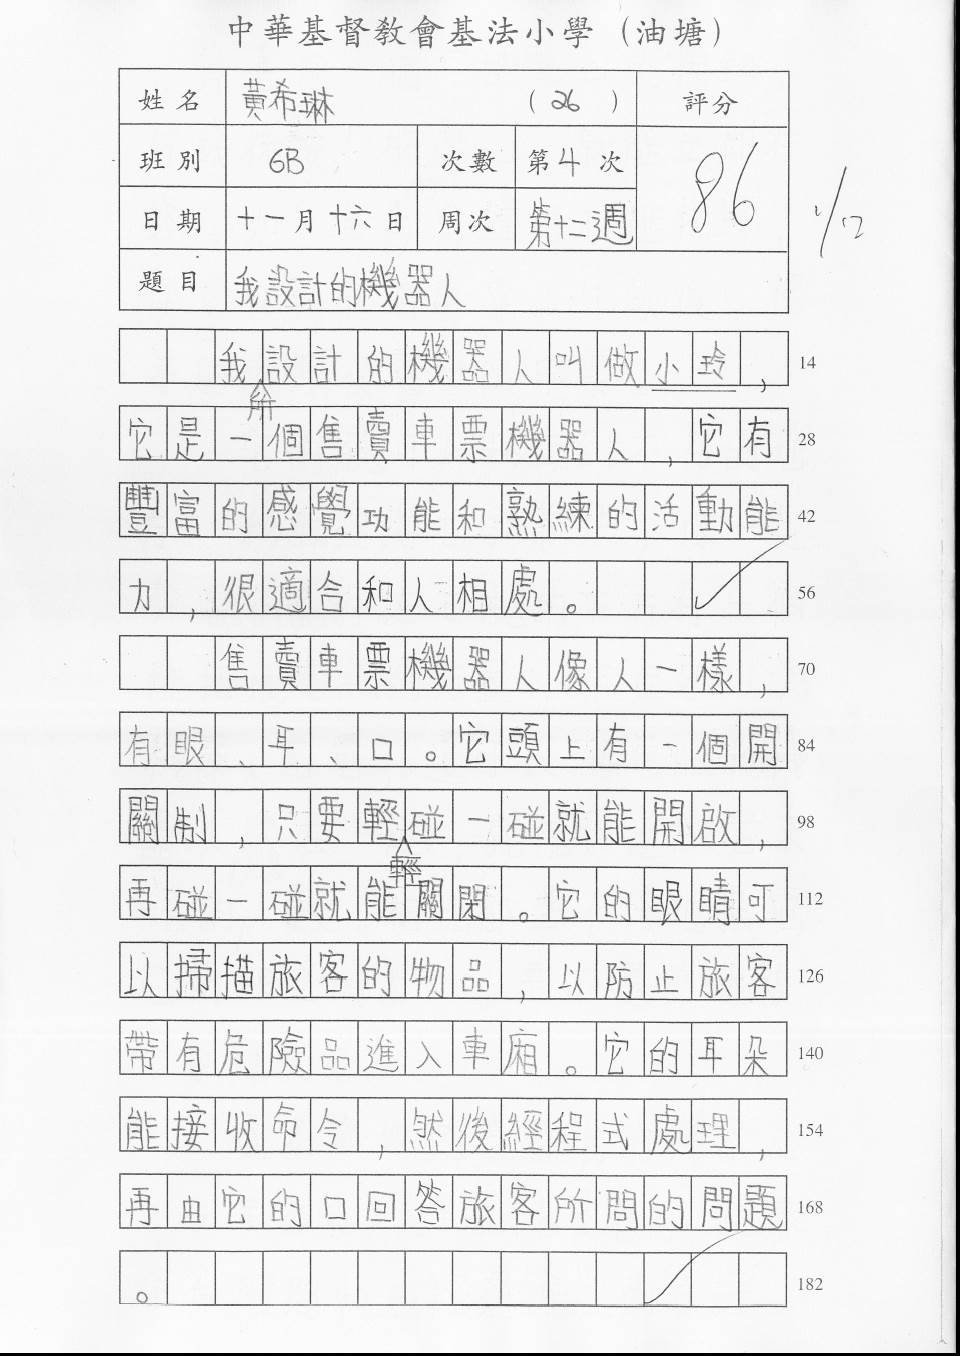 中華基督教會基法小學（油塘）
姓名 黃希琳 （26） 評分
班別 6B 次數 第4次 86
日期 十一月十六日 周次 第十二週
題目 我設計的機器人
我設計的機器人叫做小玲， 14
所
它是一個售賣車票機器人，它有 28
豐富的感覺功能和熟練的活動能 42
力，很適合和人相處。 56
售賣車票機器人像人一樣， 70
有眼、耳、口。它頭上有一個開 84
關制，只要輕碰一碰就能開啟， 98
輕
再碰一碰就能關閉。它的眼睛可 112
以掃描旅客的物品，以防止旅客 126
帶有危險品進入車廂。它的耳朵 140
能接收命令，然後經程式處理， 154
再由它的口回答旅客所問的問題 168
。 182